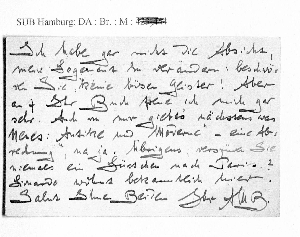 SUB Hamburg: DA : Br. : M :
Ich habe gar nicht die Absicht,
meine Gegenwart zu verändern. beschwö-
ren Sie keine bösen Geister! Aber
auf Ihr Buch freue ich mich gar
sehr. Auch von mir giebts nächstens was
Neues: Antike und Moderne – eine Ab-
rechnung", na ja. Übrigens verreisen Sie
niemals ein bisschen nach Paris?
wohnt bekanntlich hier.
Salut Ihnen Beiden Ihr AMB.